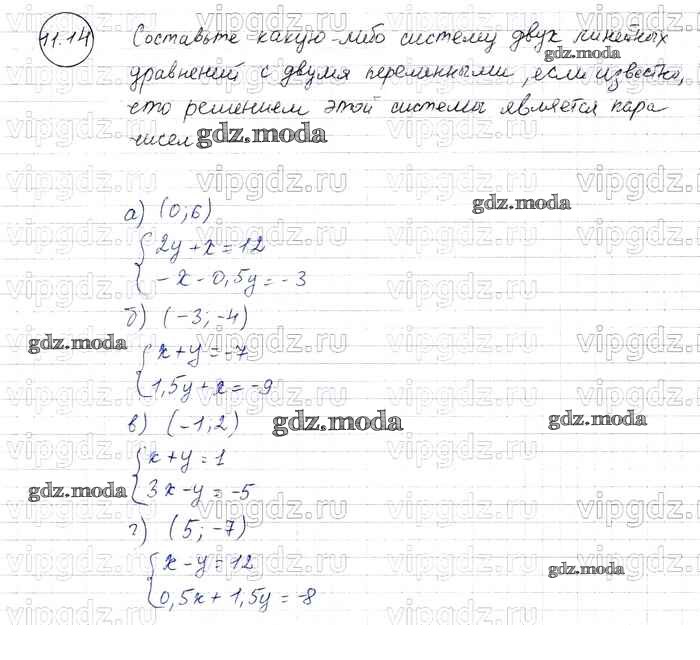 11.14 Составьте какую-либо систему двух линейных
уравнений с двумя переменными, если известно,
что решением этой системы является пара
чисел
а) (0; 6)
2y + x = 12
- x - 0,5y = - 3
б) (-3; -4)
x + y = -7
1,5y + x = -9
в) (-1; 2)
x + y = 1
3x - y = -5
г) (5; -7)
x - y = 12
0,5x + 1,5y = -8
vipgdz.ru
gdz.moda